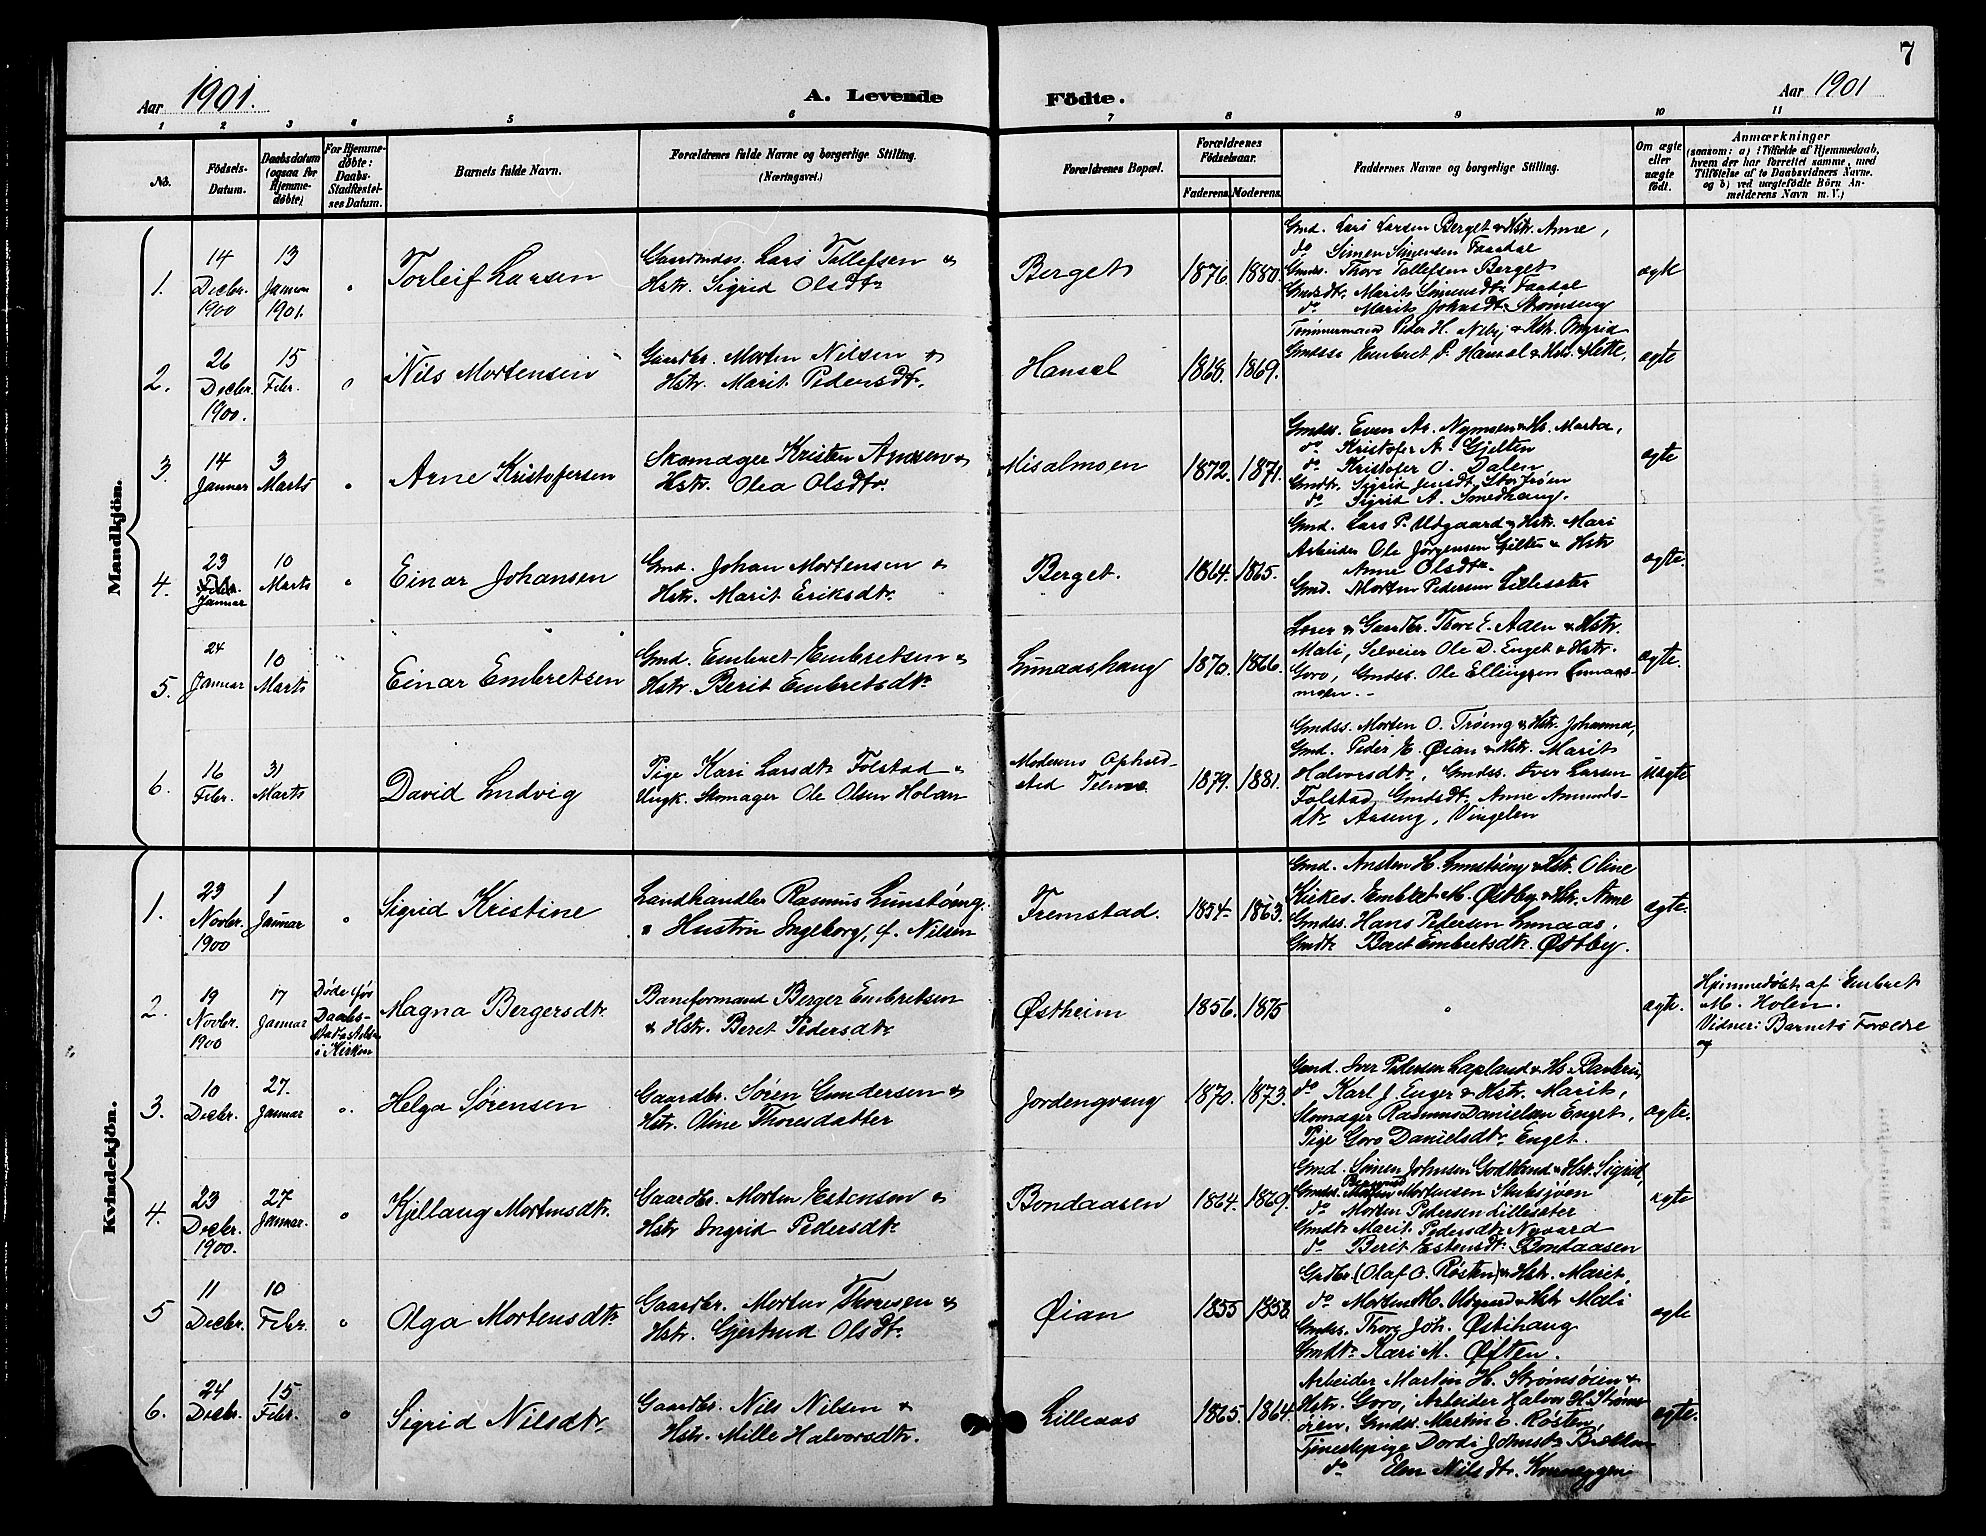 7
Aar 1901.
A. Levende Födte.
Aar 1901
1 2 3 4 5 6 7 8 9 10 11
No.
Födsels-Datum.
Daabsdatum (ogsaa for Hjemmedöbte)
For Hjemmedöbte: Daabs-Stadfæstelses Datum.
Barnets fulde Navn.
Forældrenes fulde Navne og borgerlige Stilling.
(Næringsvei.)
Forældrenes Bopæl.
Forældrenes Födselsaar.
Faderens. Moderens.
Faddernes Navne og borgerlige Stilling.
Om ægte eller uægte födt.
Anmærkninger
(saasom: a) i Tilfælde af Hjemmedaab, hvem der har forrettet samme, med Tilföielse af to Daabsvidners Navne. og b) ved uægtefödte Börn Anmelderens Navn m. V.)
Mandkjön.
1. 14 Decbr. 1900
13 Januar 1901.
Torleif Larsen
Gaardmdss. Lars Tollefsen &
Hstr. Sigrid Olsdtr
Berget
1876. 1880.
Gmd. Lars Larsen Berget & Hstr. Anne,
do Simen Simensen Faadal
Gmdss. Thore Tollefsen Berget
Gmdsdtr. Marit Simensdtr. Faadal
do Marit Johnsdtr. Strømseng
ægte
2. 26 Decbr. 1900.
15 Febr.
Nils Mortensen
Gaardbr. Morten Nilsen &
Hstr. Marit Pedersdtr.
Hansæl
1868. 1869.
Tømmermand Peder H. Neby & Hstr. Ingrid
Gmdss. Embret P. Hansæl & Hstr. Mette,
ægte
3. 14 Januar
3 Marts
Arne Kristofersen
Skomager Kristen Amdsen &
Hstr. Olea Olsdtr.
Misalmoen
1872. 1871.
Gmdss. Even Ar. Nymoen & Hs. Marta,
do Kristofer A. Gjelten
do Kristofer O. Dalen
Gmdtr. Sigrid Jensdt. Storfrøen
do Sigrid A. Smedhaug.
ægte
4. 23 Januar
10 Marts
Einar Johansen
Gmd. Johan Mortensen &
Hstr. Marit Eriksdtr.
Berget.
1864. 1865.
Gmd. Lars P. Udgaard & Hstr. Mari
Arbeider Ole Jörgensen Gjelten & Hstr
Anne Olsdtr.
Gmd. Morten Pedersen Lillesæter
ægte.
5. 24 Januar
10 Marts
Einar Embretsen
Gmd. Embret Embretsen &
Hstr. Berit Embretsdtr
Lunaashaug
1870. 1866.
Lærer & Gaardbr. Thore E. Aaen & Hstr.
Mali, Selveier Ole D. Enget & Hstr.
Goro, Gmdss. Ole Ellingsen Lunaas-
moen.
ægte.
6. 16 Febr.
31 Marts
David Ludvig
Pige Kari Larsdtr Tolstad &
Ungk. Skomager Ole Olsen Holan
Moderens Ophold-
sted
1879. 1881.
Gmdss. Morten O. Trøeng & Hstr. Johanna,
Gmd. Peder E. Øian & Hstr. Marit
Halvorsdtr, Gmdss. Iver Larsen
Tolstad, Gmdsdtr. Anne Amunds-
dtr Aaseng, Vingelen
uægte
Kvindekjön.
1. 23 Novbr. 1900
1 Januar
Sigrid Kristine
Landhandler Rasmus Lunströeng
& Hustru Ingeborg, f. Nilsen
Fremstad.
1854 1863.
Gmd. Ansten H. Lunströeng & Hstr. Oline
Kirkes. Embret M. Østby & Hstr. Anne
Gmdss. Hans Pedersen Lunaas,
Gmdtr Beret Embretsdtr. Østby.
ægte.
2. 19 Novbr. 1900
17 Januar
Døde før Daabs-
i Kirken
Magna Bergersdtr
Baneformand Berger Embretsen
& Hstr. Beret Pedersdtr
Østheim
1856. 1875
ægte.
Hjemmedøbt af Embret
M. Holen.
Vidner: Barnets Forældre
og
3. 10 Decbr.
27. Januar
Helga Sørensen
Gaardbr. Sören Gundersen &
Hstr. Oline Thoresdatter
Jordengvang
1870. 1873.
Gmd. Iver Pedersen Lapland & Hs.
do Karl J. Enger & Hstr. Marit,
Skomager Rasmus Danielsen Enget,
Pige Goro Danielsdtr. Enget.
ægte.
4. 23 Decbr. 1900.
27 Januar.
Kjellaug Mortensdtr.
Gaardbr. Morten Estensen &
Hstr Ingrid Pedersdtr
Bondaasen
1864. 1869.
Gmd. Simen Johnsen Godtland & Hstr. Sigrid,
Gmdss. Mortensen Stubsjøen
do Morten Pedersen Lillesæter
Gmdtr Marit Pedersdtr Nygaard
do Berit Estensdtr. Bondaasen
ægte
5 11 Decbr.
10 Febr.
Olga Mortensdtr
Gaardbr. Morten Thoresen &
Hstr. Gjertrud Olsdtr.
Øian
1855 1858
Grdbr. (Olaf O. Røsten) & Hstr. Marit,
do Morten M. Udgaard & Hstr Mali
Gmdss. Thore Joh. Østihaug
Gmdtr Kari M. Øften.
ægte
6. 24 Decbr.
15 Febr.
Sigrid Nilsdtr.
Gaardbr. Nils Nilsen &
Hstr. Mille Halvorsdtr.
Lilleaas
1865. 1864.
Arbeider Martin H. Strømsöien &
Hstr. Goro, Arbeider Halvor H. Strøms-
öien, Gmdss. Martin E. Røsten,
Tjenestepige Dordi Johnsdtr
do Elen Nilsdtr.
ægte.